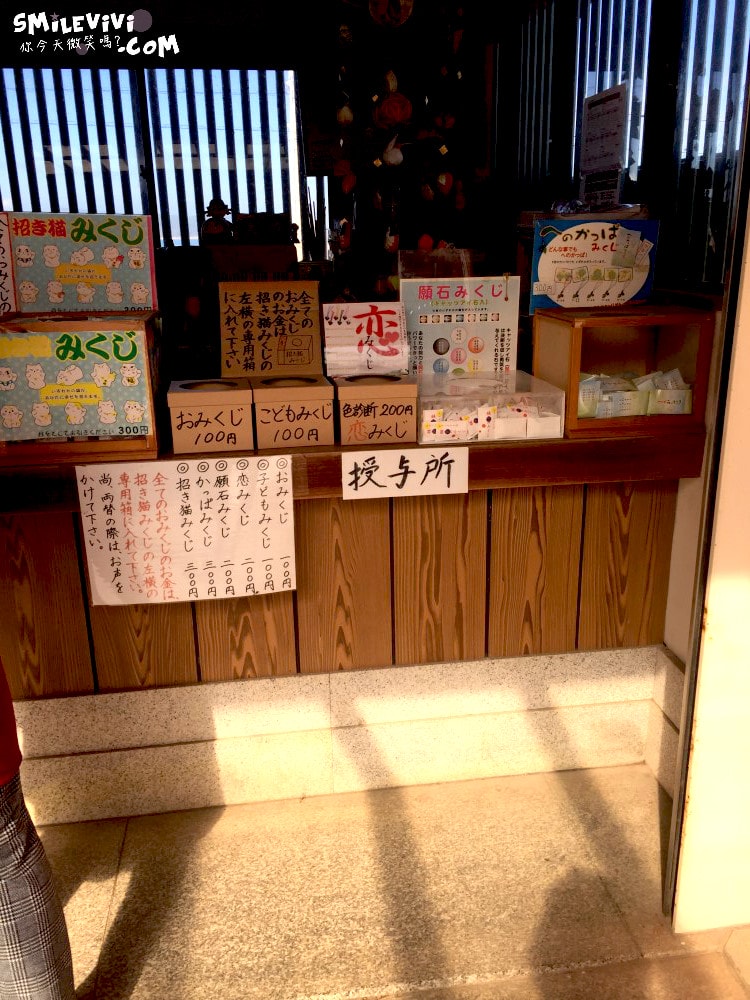 SMiLEViVi
你今天微笑嗎?
.COM
招き猫みくじ
300円
みくじ
300円
全ての
おみくじ
のお金は
招き猫みくじの
左横の専用箱
に入れて下さい
恋みくじ
願石みくじ
へのかっぱ
みくじ
どんな事でも
へのかっぱ!
おみくじ
100円
こどもみくじ
100円
色診断 200円
恋みくじ
授与所
◎おみくじ 一〇〇円
◎子どもみくじ 一〇〇円
◎恋みくじ 二〇〇円
◎願石みくじ 二〇〇円
◎かっぱみくじ 三〇〇円
◎招き猫みくじ 三〇〇円
全てのおみくじのお金は、
招き猫みくじの左横の
専用箱に入れて下さい。
尚、両替の際は、お声を
かけて下さい。